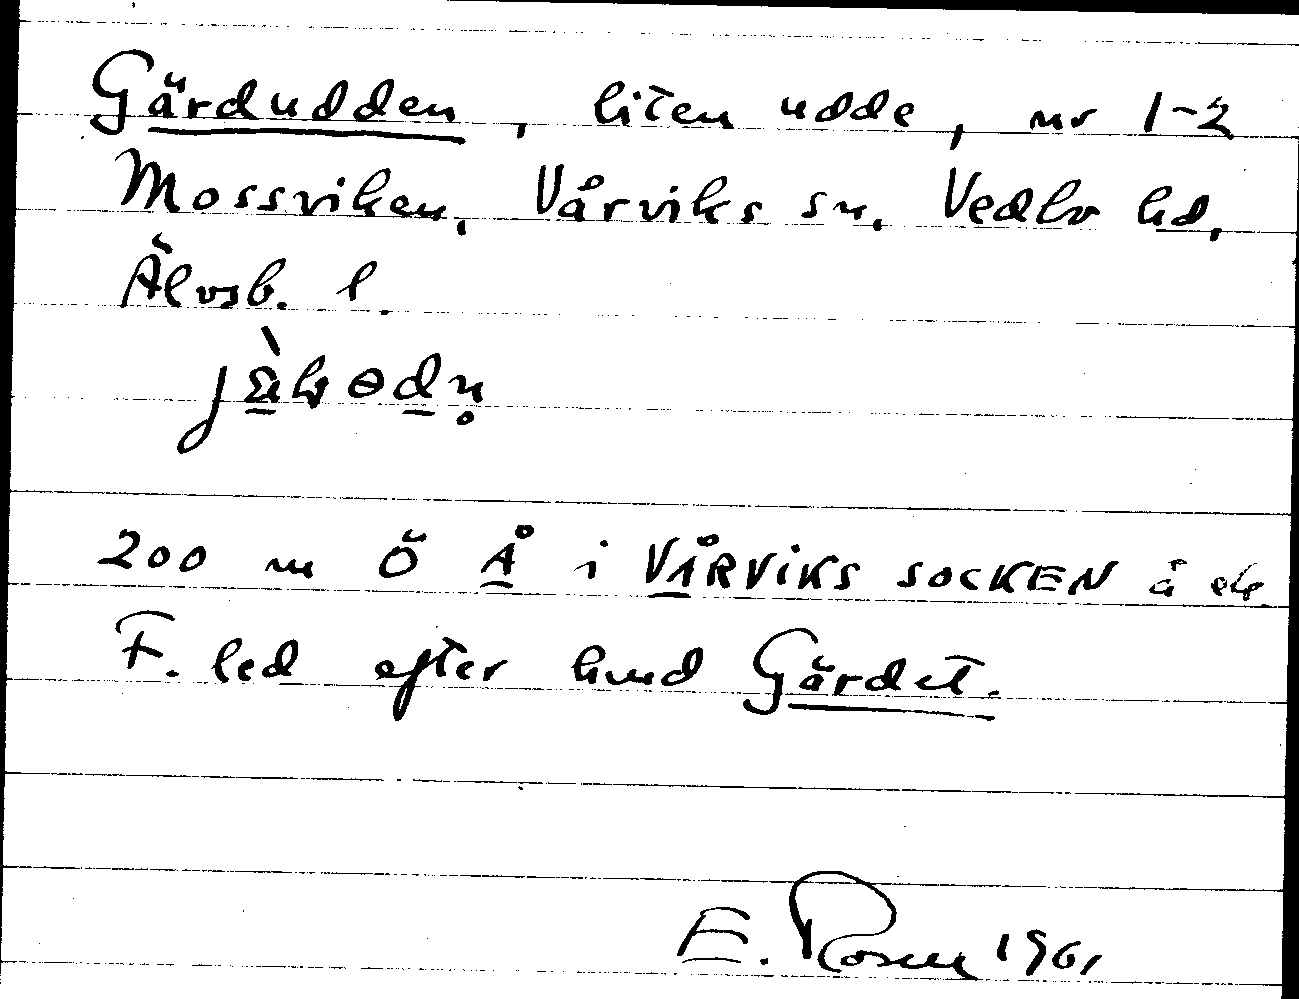 Gärdudden, liten udde, nr 1-2
Mossviken, Vårviks sn. Vedbo hd,
Älvsb. l.
200 m Ö Å i VÅRVIKS SOCKEN å ek
F. led efter hmd Gärdet.
E. Rosen 1961